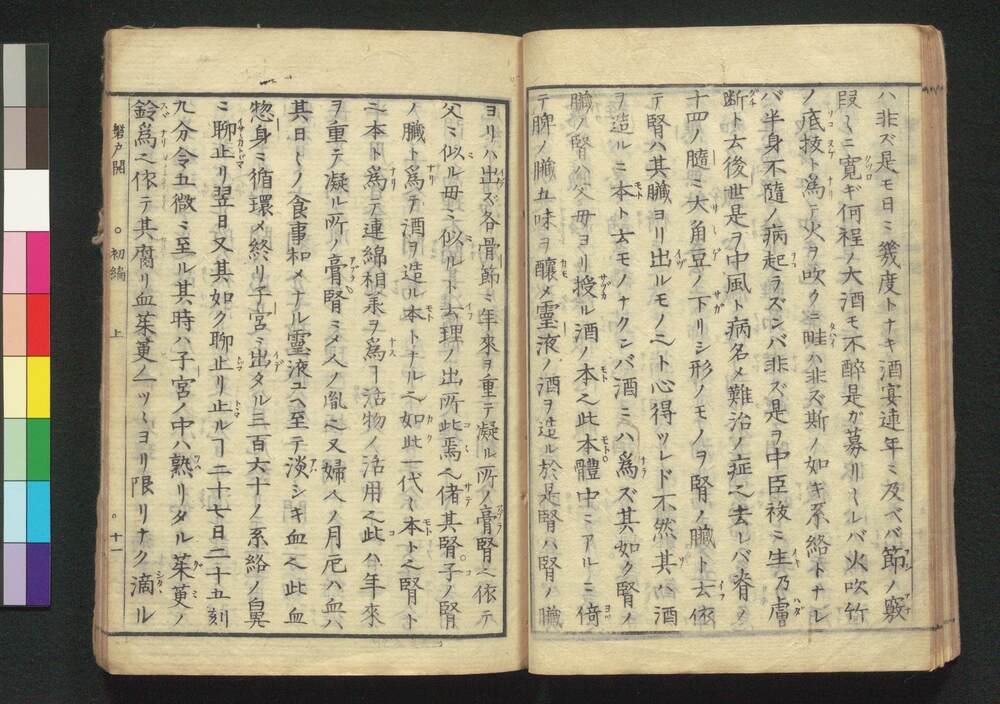 ハ非ズ是モ日ミ幾度トナキ酒宴連年ミ及ベバ節ノ竅
叚ミニ寛ギ何程ノ大酒モ不醉是ガ募リミレバ火吹竹
ノ底抜ト為テ火ヲ吹クニ畦ハ非ズ斯ノ如キ系絡トナレ
バ半身不隨ノ病起ラズンバ非ズ是ヲ中臣祓ミ生乃膚
断ト云後世是ヲ中風ト病名メ難治ノ症也去レバ脊ノ
十四ノ髄ミ大角豆ノ下リシ形ノモノヲ腎ノ臓ト云依
テ腎ハ其臓ヨリ出ルモノ也ト心得ツレド不然其ハ酒
ヲ造ルニ本ト云モノナクンバ酒ミハ為ズ其如ク腎ノ
臓ノ腎ハ父母ヨリ授ル酒ノ本也此本體中ミアルニ倚
テ脾ノ臓五味ヲ釀メ靈液ノ酒ヲ造ル於是腎ハ腎ノ臓
ヨリハ出ズ各骨節ミ年來ヲ重テ凝ル所ノ膏腎也依テ
父ミ似ル母ミ似ルト云理ノ出所此焉也偖其腎子ノ腎
ノ臓ト為テ酒ヲ造ル本トナル也如此一代ミ本ト之腎ト
之本ト為テ連綿相承ヲ為ヿ活物ノ活用也此ハ年來
ヲ重テ凝ル所ノ膏腎ミメ人ノ胤也又婦人ノ月厄ハ血ハ
其日ミノ食事和メナル靈液ユヘ至テ淡シキ血也此血
惣身ミ循環メ終リ子宮ミ出タル三百六十ノ系絡ノ鼻
ミ聊止リ翌日又其如ク聊止リ止ルヿ二十七日二十五刻
九分令五微ミ至ル其時ハ子宮ノ中ハ熟リタル茱萸ノ
鈴為也依テ其腐リ血茱萸ノ一ツミヨリ限リナク滴ル
磐戸開 ○初編 上 ○十一